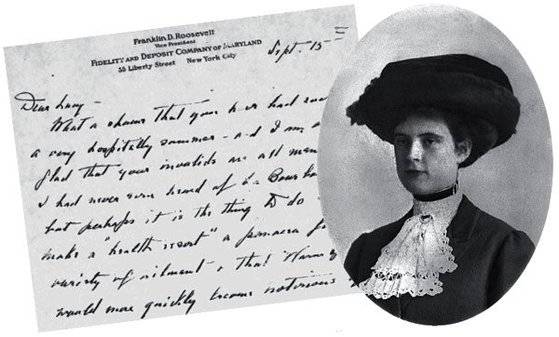 Franklin D. Roosevelt
Vice President
FIDELITY AND DEPOSIT COMPANY OF MARYLAND
55 Liberty Street New York City
Sept. 15
Dear Lucy –
What a shame that you have had
a very hospitally summer – and I am
glad that your invalids are all
I had never even heard of La
but perhaps it is the thing to do
make a "health resort" a panacea
variety of ailments, that Warm
would more quickly become notorious